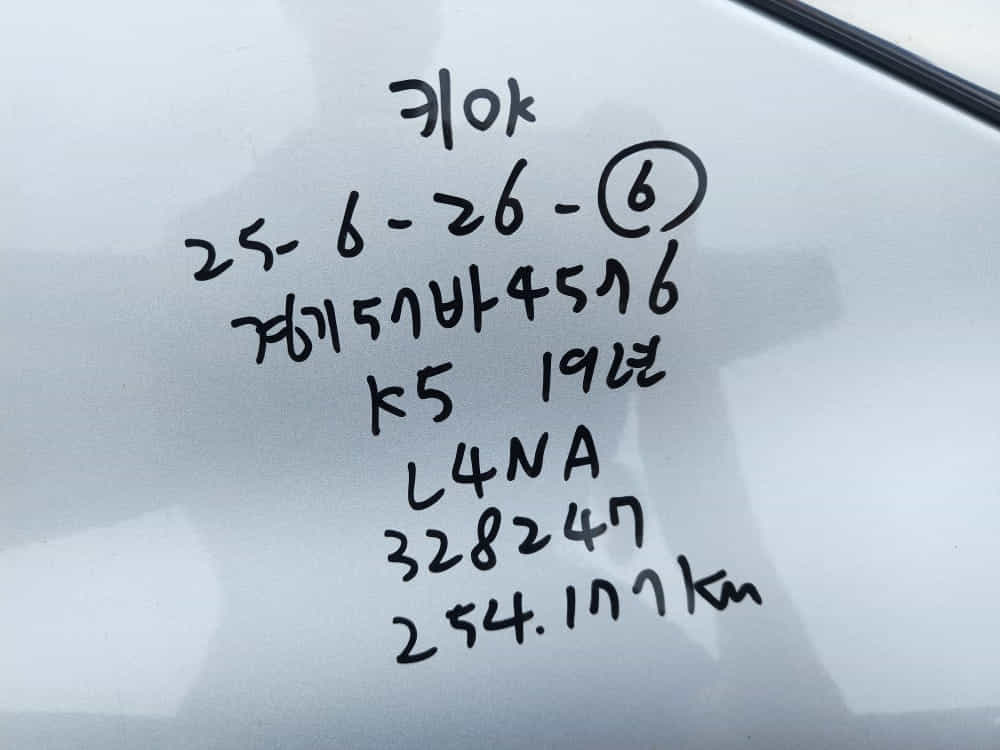 키아
25-6-26-⑥
경기57바4576
K5 19년
L4NA
328247
254.177km